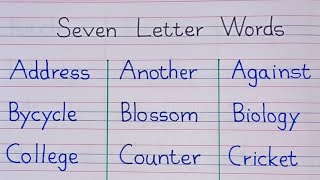 Seven Letter Words
Address Another Against
Bycycle Blossom Biology
College Counter Cricket